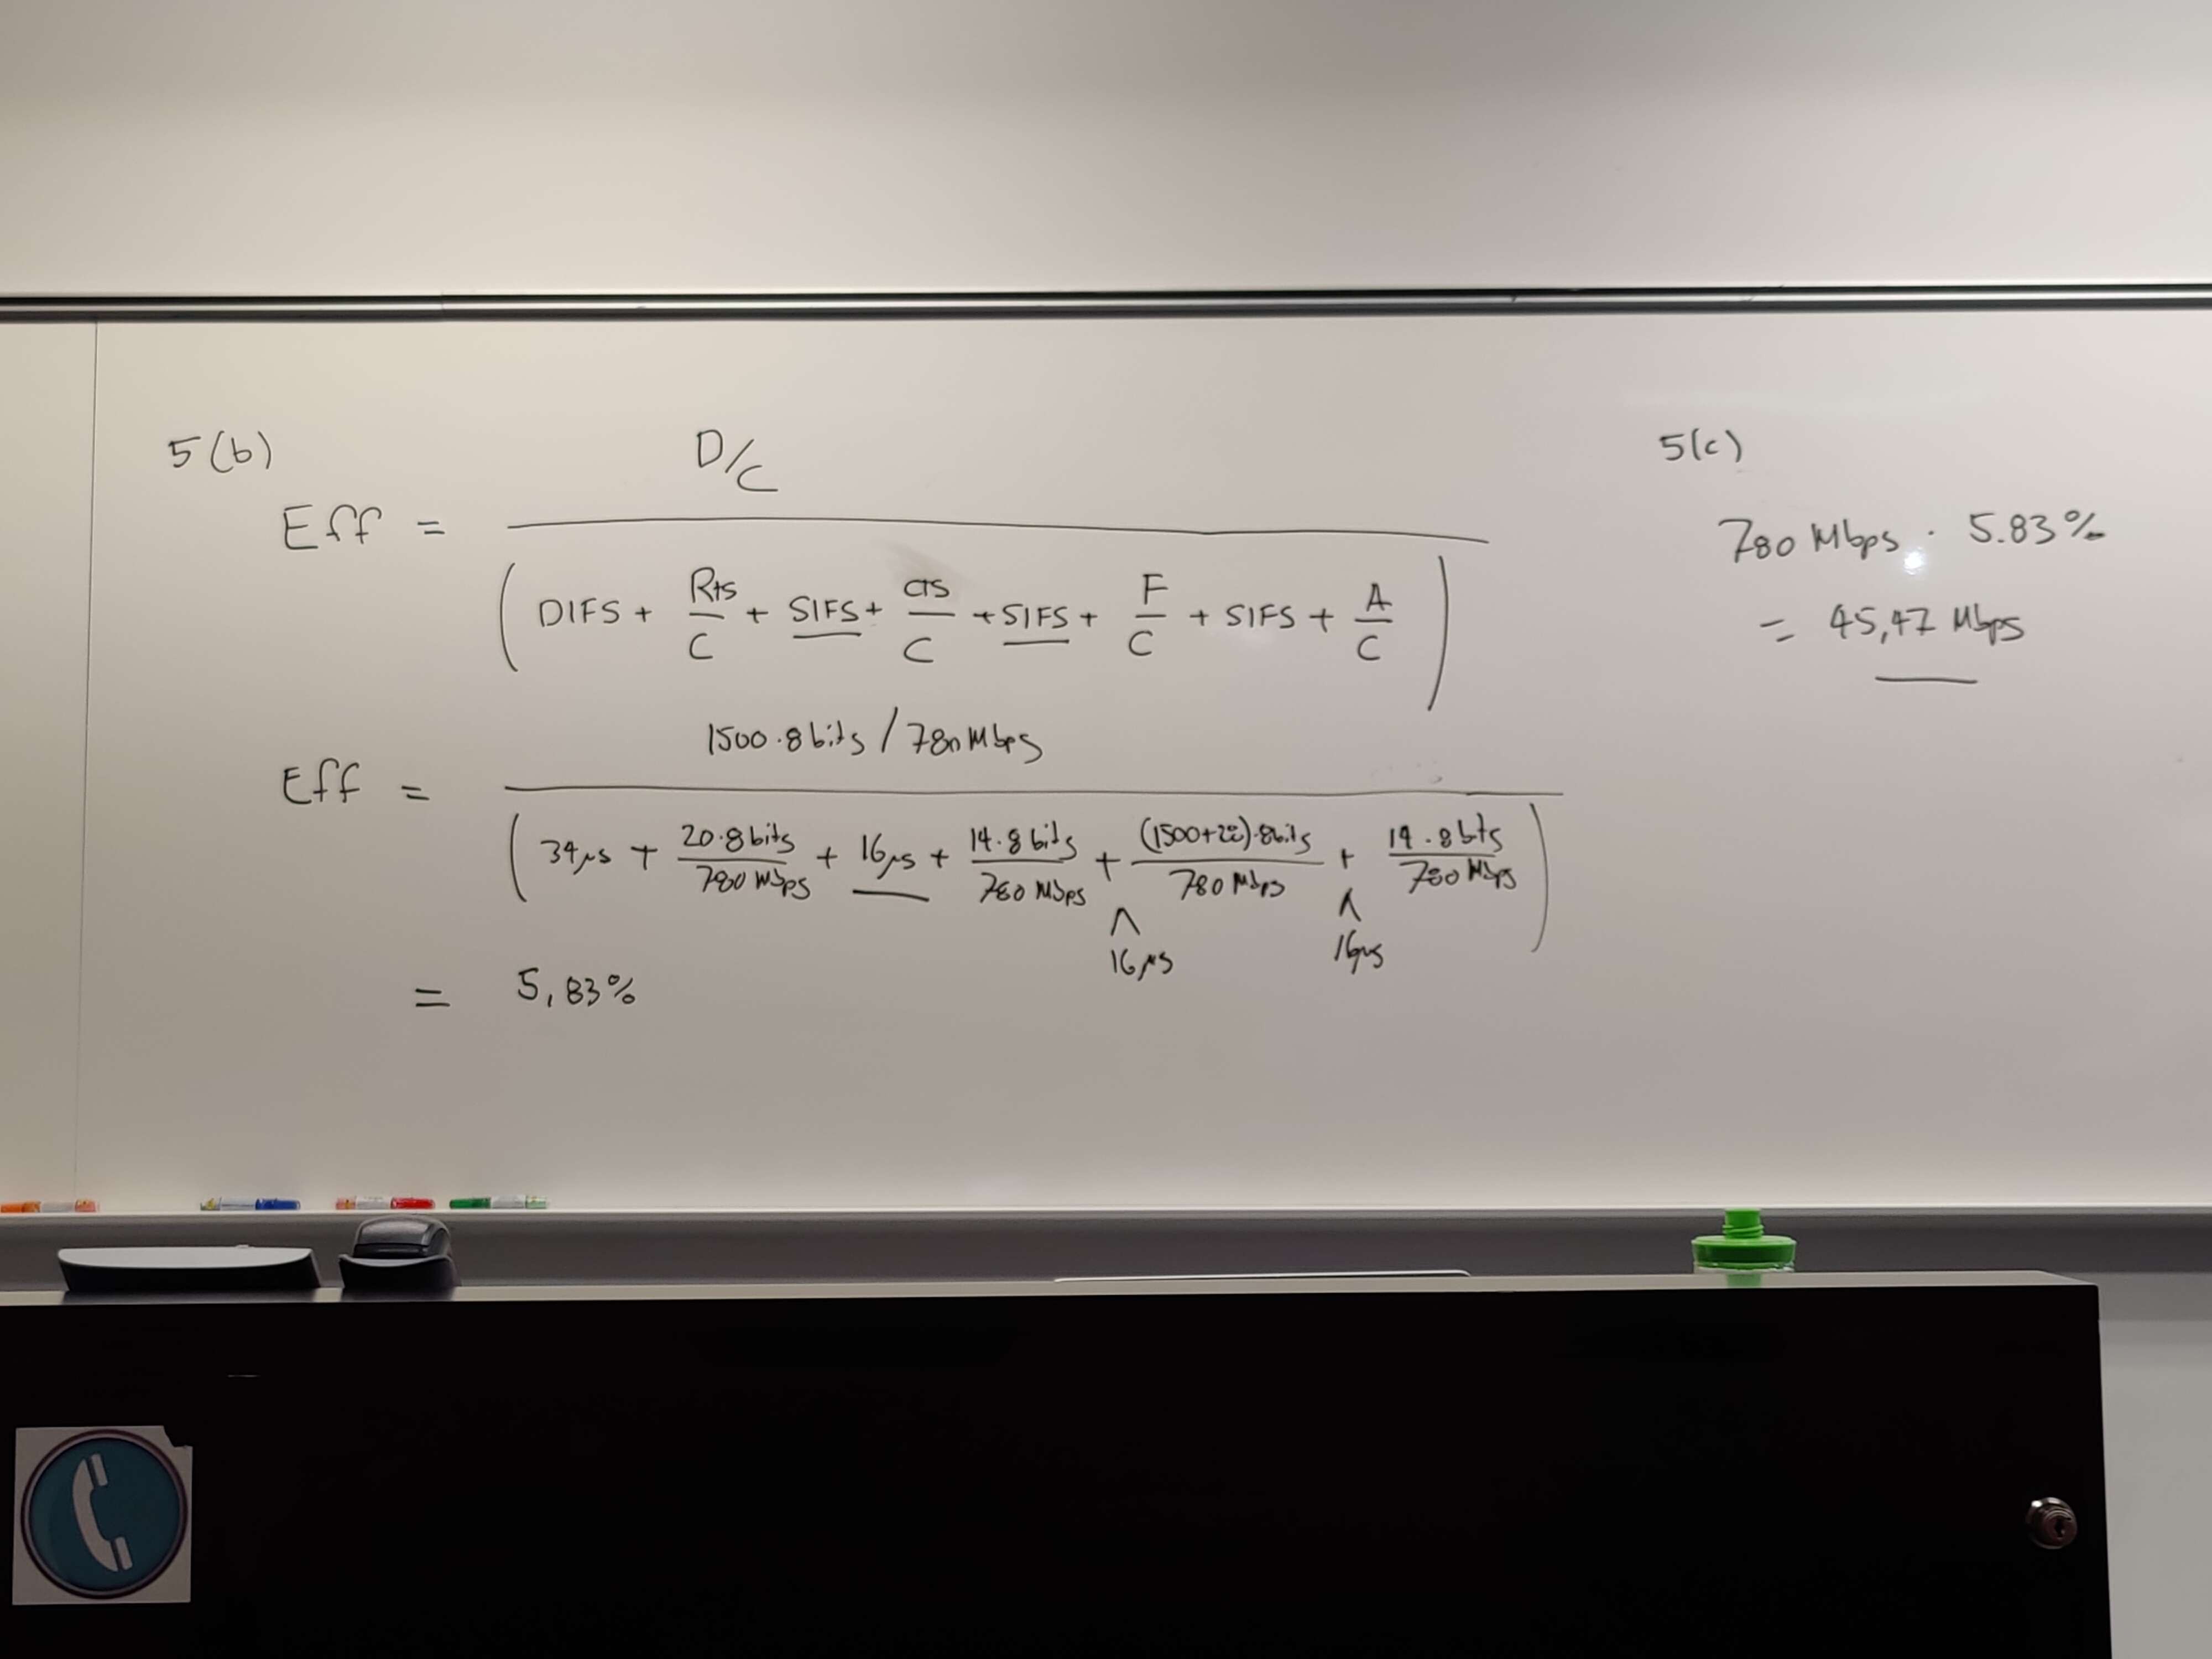 5(b)
D/C
Eff =
(DIFS + Rts/C + SIFS + CTS/C + SIFS + F/C + SIFS + A/C)
1500·8 bits / 780 Mbps
Eff =
(34μs + 20·8 bits/780 Mbps + 16μs + 14·8 bits/780 Mbps + (1500+22)·8bits/780 Mbps + 14·8 bits/780 Mbps)
^ ^
16μs 16μs
= 5,83%
5(c)
780 Mbps · 5.83%
= 45,47 Mbps